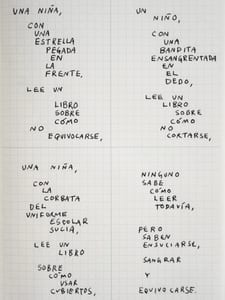 UNA NIÑA,
CON
UNA
ESTRELLA
PEGADA
EN
LA
FRENTE,
LEE UN
LIBRO
SOBRE
CÓMO
NO
EQUIVOCARSE,
UN
NIÑO,
CON
UNA
BANDITA
ENSANGRENTADA
EN
EL
DEDO,
LEE UN
LIBRO
SOBRE
CÓMO
NO
CORTARSE,
UNA NIÑA,
CON
LA
CORBATA
DEL
UNIFORME
ESCOLAR
SUCIA,
LEE UN
LIBRO
SOBRE
CÓMO
USAR
CUBIERTOS,
NINGUNO
SABE
CÓMO
LEER
TODAVÍA,
PERO
SABEN
ENSUCIARSE,
SANGRAR
Y
EQUIVOCARSE.